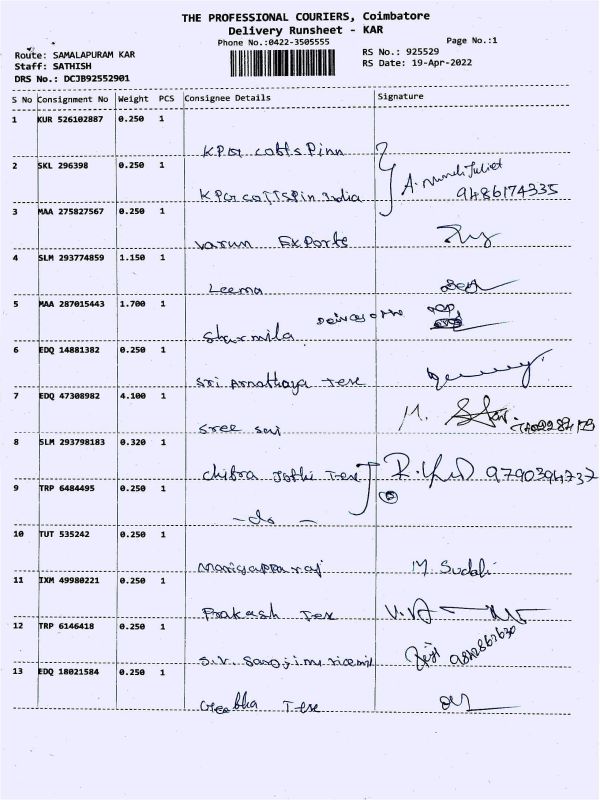 THE PROFESSIONAL COURIERS, Coimbatore
Delivery Runsheet - KAR
Phone No.:0422-3505555
Page No.:1
Route: SAMALAPURAM KAR
RS No.: 925529
Staff: SATHISH
RS Date: 19-Apr-2022
DRS No.: DCJB92552901
S No Consignment No Weight PCS Consignee Details Signature
1 KUR 526102887 0.250 1
KPR
2 SKL 296398 0.250 1
KPR India
9486174335
3 MAA 275827567 0.250 1
Varun Exports
4 SLM 293774859 1.150 1
Leema
5 MAA 287015443 1.700 1
Sharmila
6 EDQ 14881382 0.250 1
Sri Tex
7 EDQ 47308982 4.100 1
Sree Sai M.
8 SLM 293798183 0.320 1
Chitra Jothi Tex 9790394737
9 TRP 6484495 0.250 1
- do -
10 TUT 535242 0.250 1
Mariyappa raj M.
11 IXM 49980221 0.250 1
Prakash Tex
12 TRP 6146418 0.250 1
S.V. Sarojini ricemill
13 EDQ 18021584 0.250 1
Tex